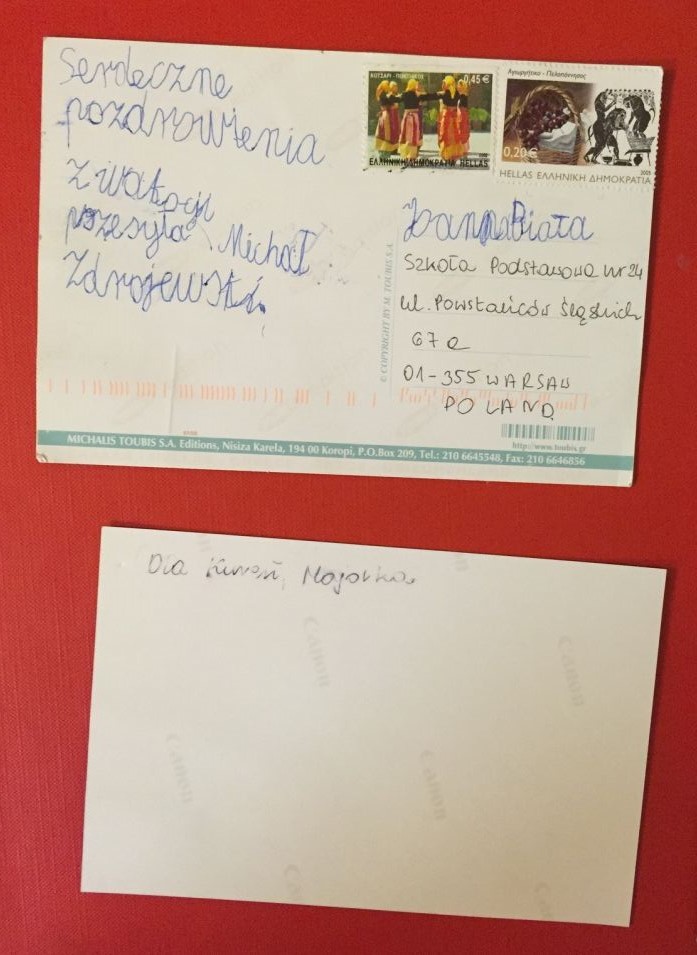 Serdeczne
pozdrowienia
z wakacji
przesyła Michał
Zdrojewski
ΚΟΤΣΑΡΙ - ΠΟΝΤΙΑΚΟΣ
0,45 €
ΕΛΛΗΝΙΚΗ ΔΗΜΟΚΡΑΤΙΑ HELLAS
Αγιωργήτικο - Πελοπόννησος
0,20 €
HELLAS ΕΛΛΗΝΙΚΗ ΔΗΜΟΚΡΑΤΙΑ
Biała
Szkoła Podstawowa nr 24
ul. Powstańców Śląskich
67 a
01-355 WARSAW
POLAND
© COPYRIGHT BY M. TOUBIS S.A.
http://www.toubis.gr
MICHALIS TOUBIS S.A. Editions, Nisiza Karela, 194 00 Koropi, P.O.Box 209, Tel.: 210 6645548, Fax: 210 6646856
Dla
Canon
Canon
Canon
Canon